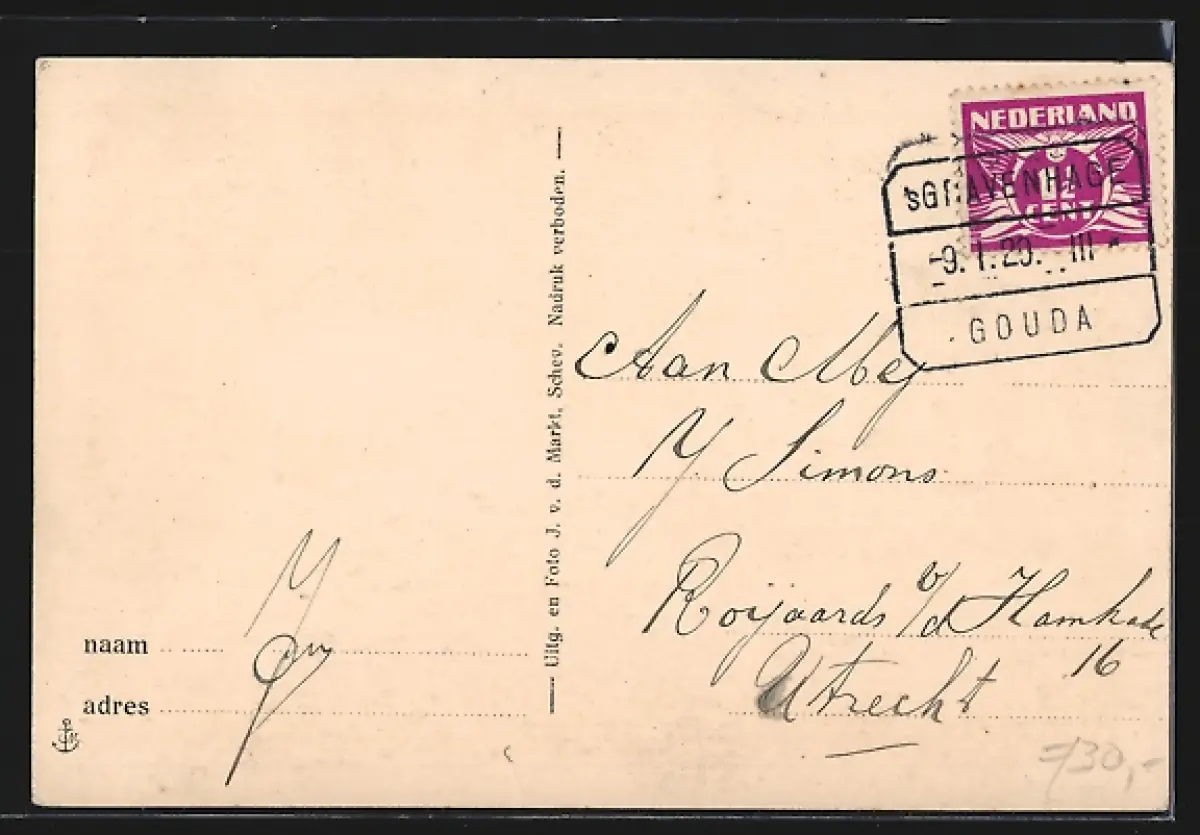 NEDERLAND
1½
CENT
'sGRAVENHAGE
-9.1.29. III
GOUDA
Uitg. en Foto J. v. d. Markt, Schev. Nadruk verboden.
Aan Mej
Y Simons
Roijaards v/d Hamkade
16
Utrecht
naam
adres
30,-